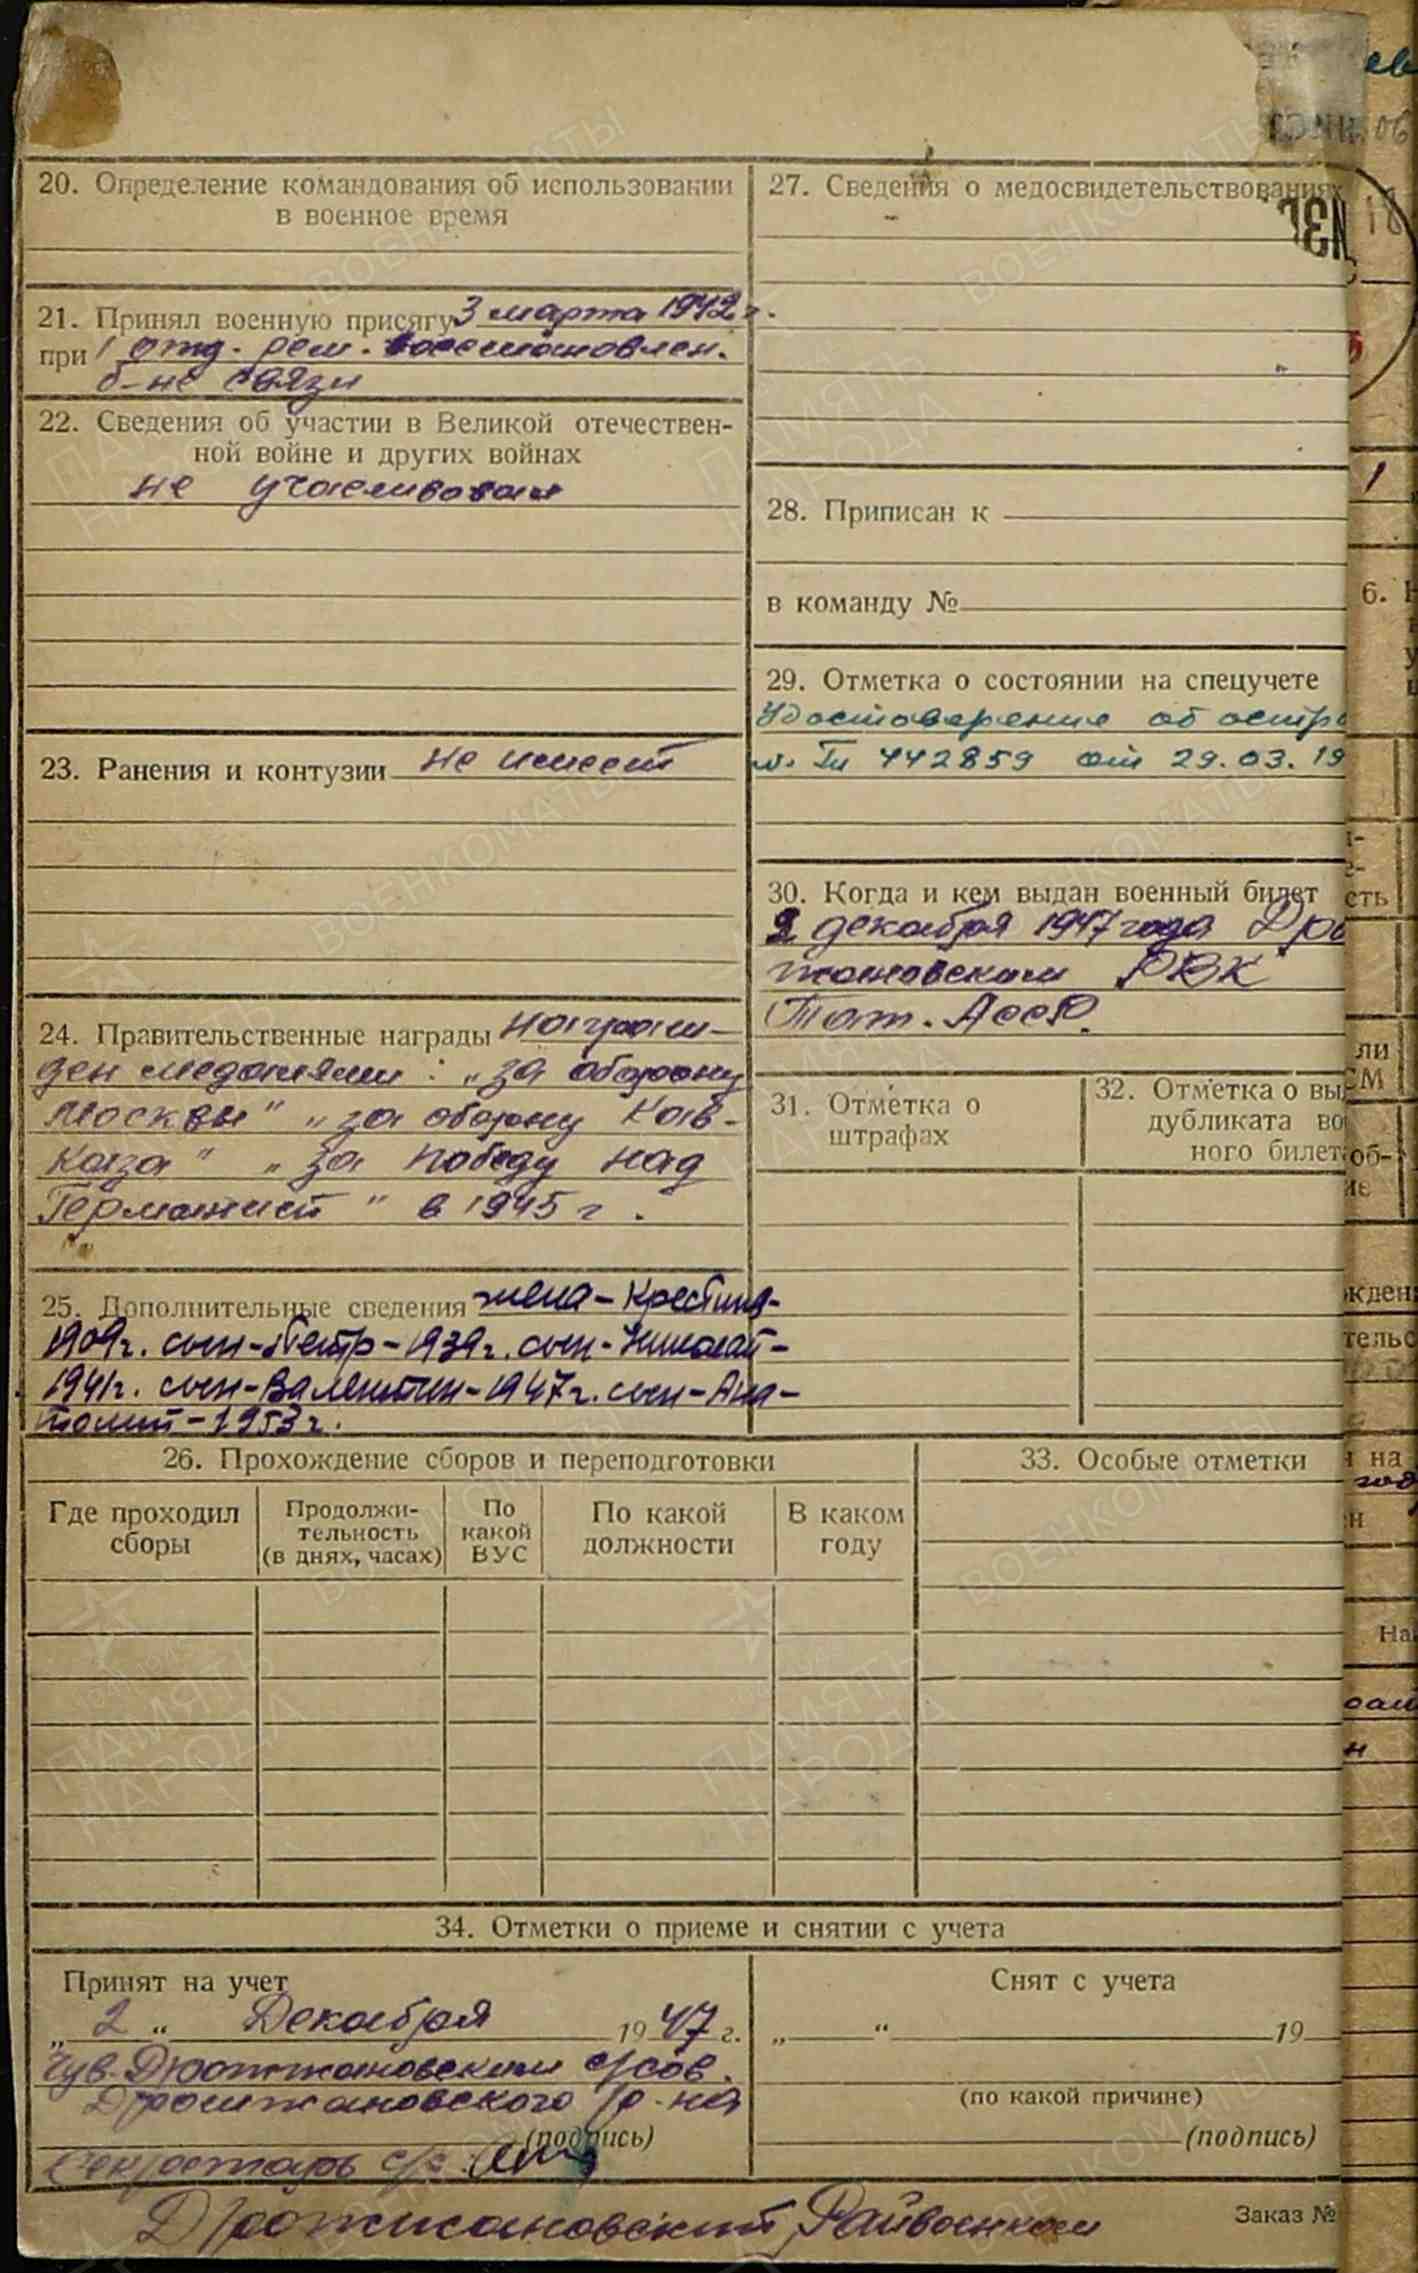 20. Определение командования об использовании
в военное время
21. Принял военную присягу 3 марта 1942 г.
при 1 отд. рем. восстановлен.
б-не связи
22. Сведения об участии в Великой отечествен-
ной войне и других войнах
не участвовал
23. Ранения и контузии не имеет
24. Правительственные награды награж-
ден медалями: „за оборону
Москвы" „за оборону Кав-
каза" „за победу над
Германией" в 1945 г.
25. Дополнительные сведения жена - Крестина-
1909г. сын-Петр-1939г. сын-Николай-
1941г. сын-Валентин-1947г. сын-Ана-
толий-1953г.
27. Сведения о медосвидетельствованиях
28. Приписан к
в команду №
29. Отметка о состоянии на спецучете
Удостоверение об
442859 от 29.03.19
30. Когда и кем выдан военный билет
2 декабря 1947 года Дро
жжановским РВК
Тат. АССР.
31. Отметка о
штрафах
32. Отметка о вы
дубликата во
ного билет
26. Прохождение сборов и переподготовки
Где проходил
сборы
Продолжи-
тельность
(в днях, часах)
По
какой
ВУС
По какой
должности
В каком
году
33. Особые отметки
34. Отметки о приеме и снятии с учета
Принят на учет
„ 2 “ Декабря 1947 г.
Чув. Дрожжановским с/сов.
Дрожжановского р-на
(подпись)
Секретарь с/с
Снят с учета
„ “ 19
(по какой причине)
(подпись)
Дрожжановский Райвоенком
Заказ №
ПАМЯТЬ
НАРОДА
ВОЕНКОМАТЫ